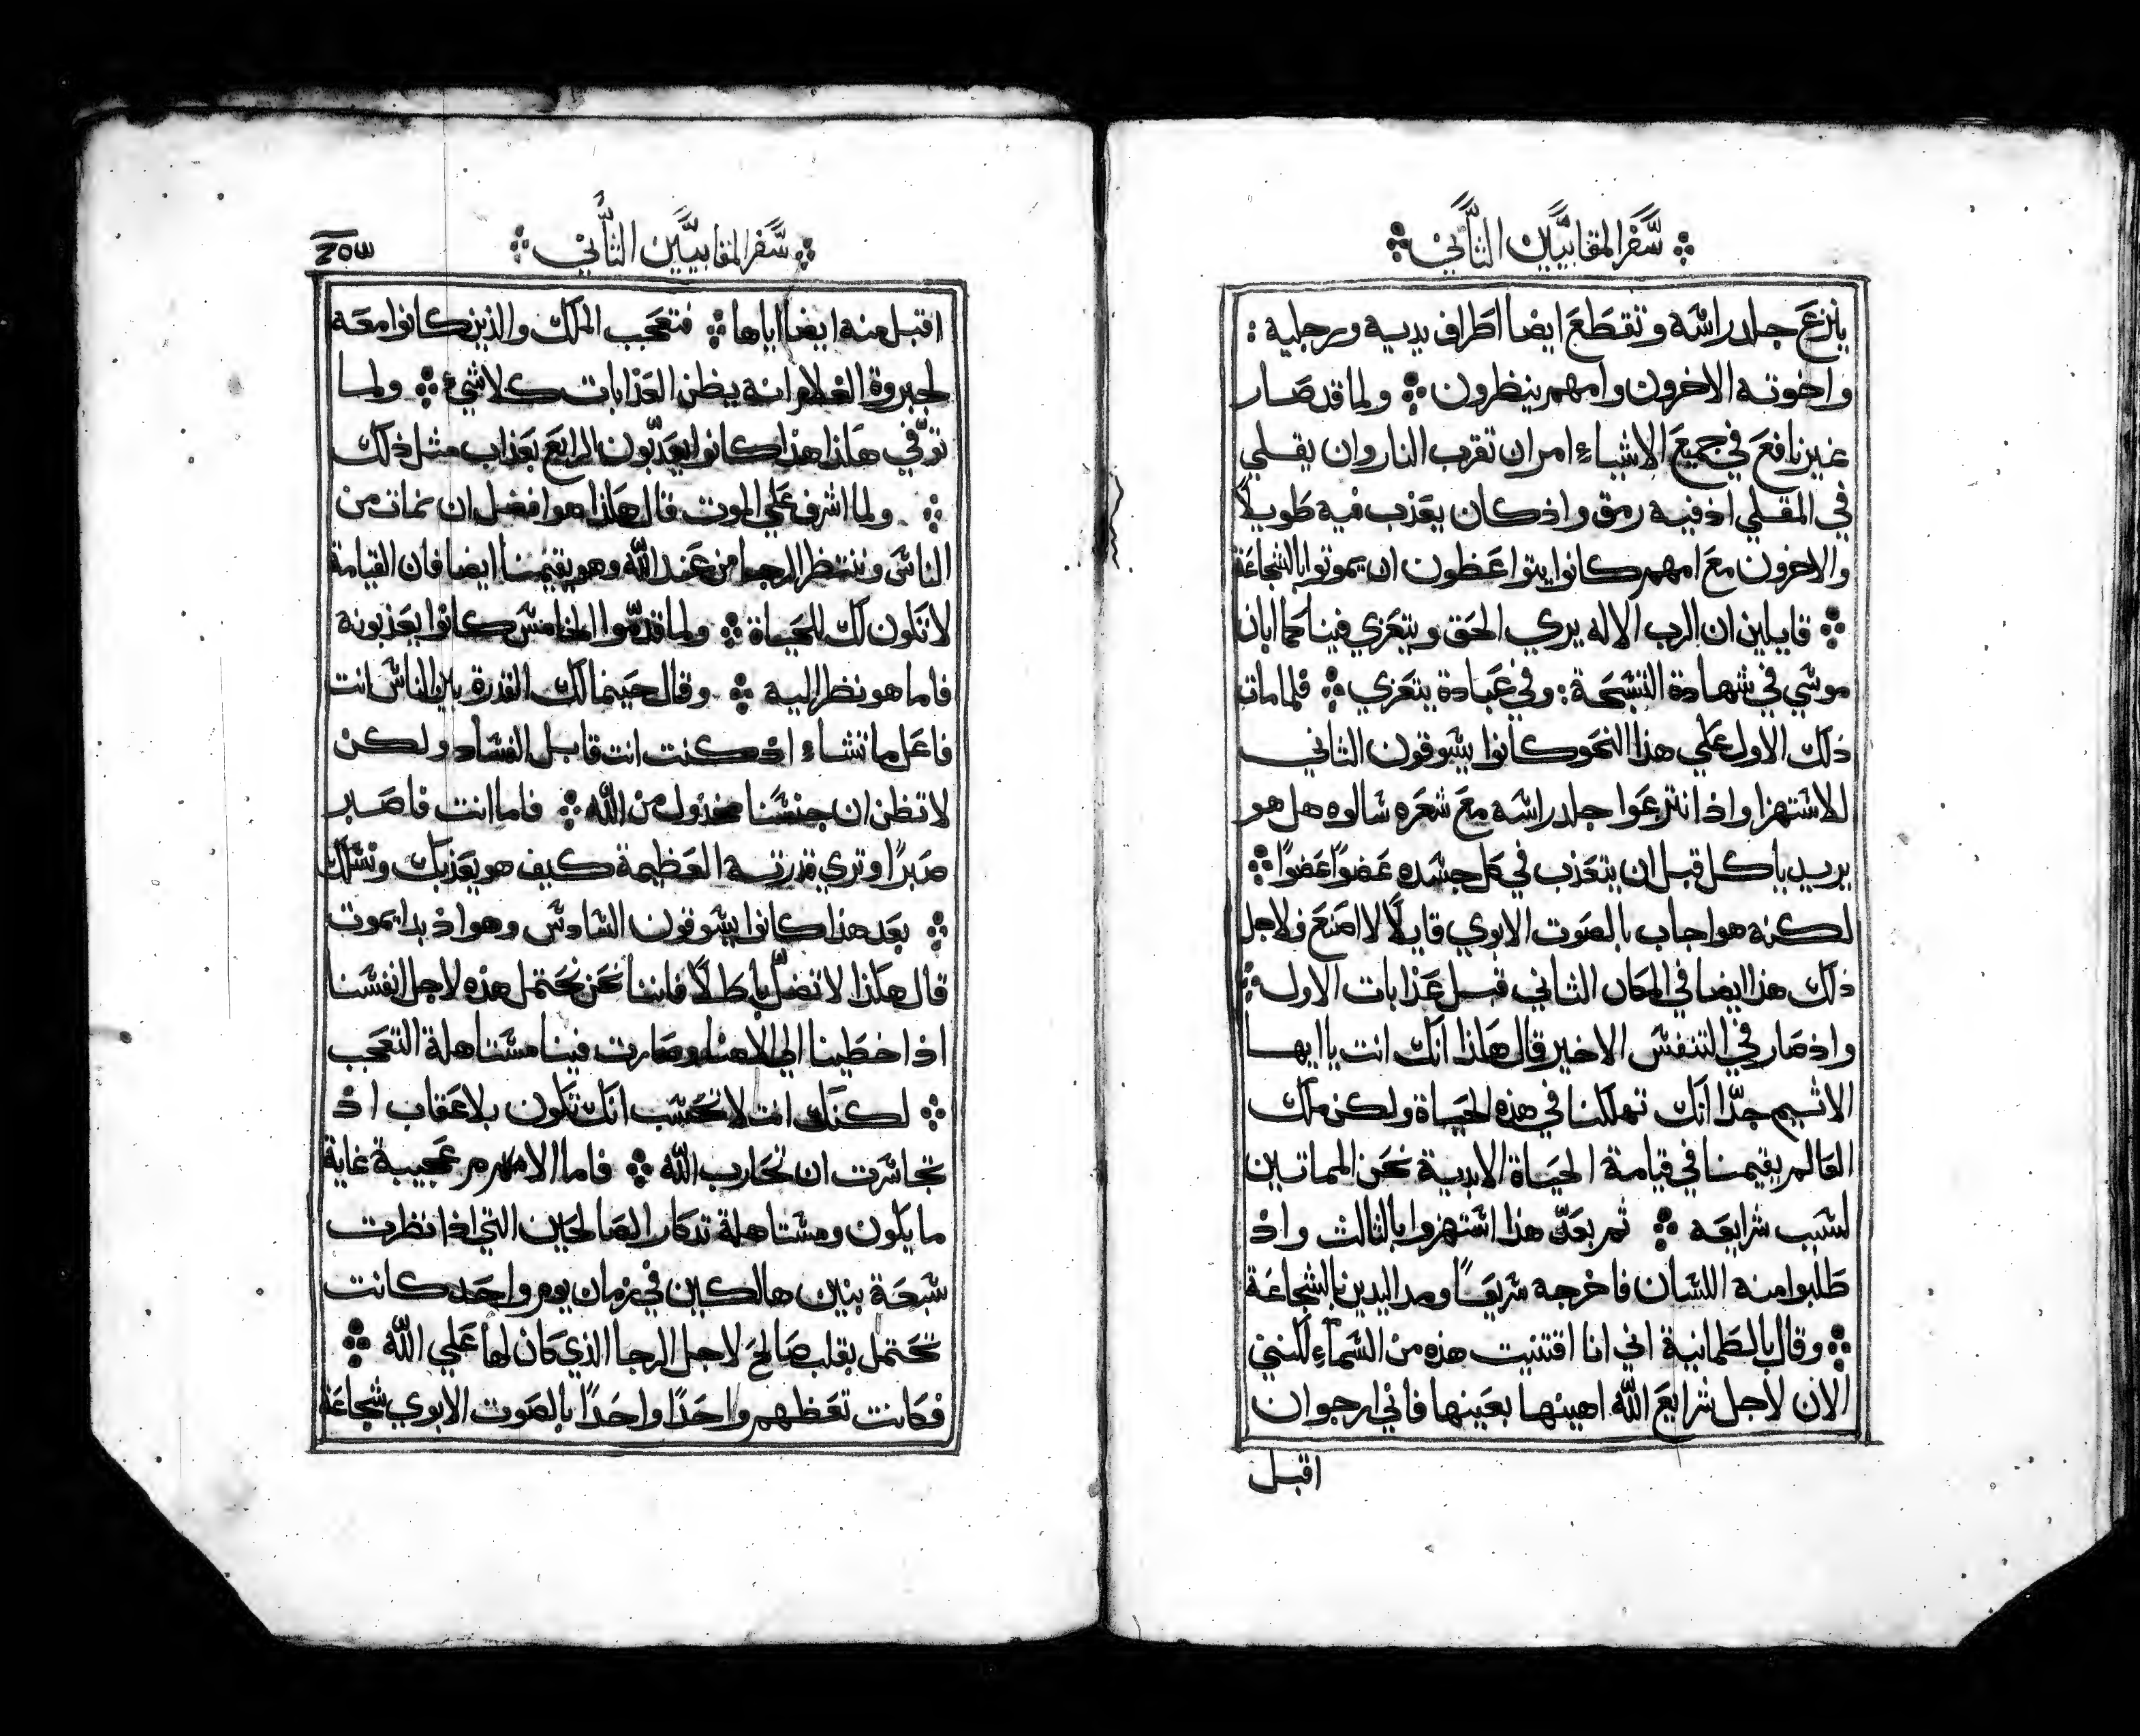 سفر المقابيين الثاني
بانزع جلد راسه وتقطع ايضا اطراف يديه ورجليه :
واخوته الاخرون وامهم ينظرون ولما قد صار
غير نافع في جميع الاشياء امر ان تقرب النار وان يقلي
في المقلي اذ فيه رمق واذ كان يعذب فيه طويلاً
والاخرون مع امهم كانوا يتواعظون ان يموتوا بالشجاعة
قايلين ان الرب الاله يري الحق ويتعزي فينا كما ابان
موسي في شهادة التسبحة : وفي عباده يتعزي فلما مات
ذلك الاول علي هذا النحو كانوا يسوقون الثاني
للاستهزا واذ انتزعوا جلد راسه مع شعره سالوه هل هو
يريد ياكل قبل ان يتعذب في كل جسده عضوًا عضوًا
لكنه هو اجاب بالصوت الابوي قايلًا لا اصنع فلاجل
ذلك هذا ايضا في المكان الثاني قبل عذابات الاول
واذ صار في التنفس الاخير قال هكذا انك انت يا ايها
الاثيم جدّا انك تهلكنا في هذه الحياة ولكن ملك
العالم يقيمنا في قيامة الحياة الابدية نحن المماتين
لسبب شرايعه ثم بعد هذا استهزوا بالثالث واذ
طلبوا منه اللسان فاخرجه سريعًا ومد اليدين بالشجاعة
وقال بالطمانية اني انا اقتنيت هذه من السماء لكنني
الان لاجل شرايع الله اهينها بعينها فاني ارجو ان
اقبل
سفر المقابيين الثاني
اقبل منه ايضا اياها فتعجب الملك والذين كانوا معه
لجبروة الغلام انه يظن العذابات كلا شيء ولما
توفي هكذا هذا كانوا يعذبون الرابع بعذاب مثل ذلك
ولما اشرف علي الموت قال هكذا هو افضل ان نمات من
الناس وننتظر الرجا من عند الله وهو يقيمنا ايضا فان القيامة
لا تكون لك للحياة ولما قدموا الخامس كانوا يعذبونه
فاما هو نظر اليه وقال حينما لك القدرة بين الناس انت
فاعل ما تشاء اذ كنت انت قابل الفساد ولكن
لا تظن ان جنسنا مخذول من الله فاما انت فاصبر
صبرًا وتري قدرته العظيمة كيف هو يعذبك ونسلك
بعد هذا كانوا يسوقون السادس وهو اذ بدا يموت
قال هكذا لا تضل باطلًا فاننا نحن نحتمل هذه لاجل انفسنا
اذ اخطينا الي الاهنا وصارت فينا مستاهلة التعجب
لكنك انت لا تحسب انك تكون بلا عقاب اذ
تجاسرت ان تحارب الله فاما الام عجيبة غاية
ما يكون ومستاهلة تذكار الصالحين التي اذا نظرت
سبعة بنين هالكين في زمان يوم واحد كانت
تحتمل بقلب صالح لاجل الرجا الذي كان لها علي الله
فكانت تعظهم واحدًا واحدًا بالصوت الابوي شجاعة